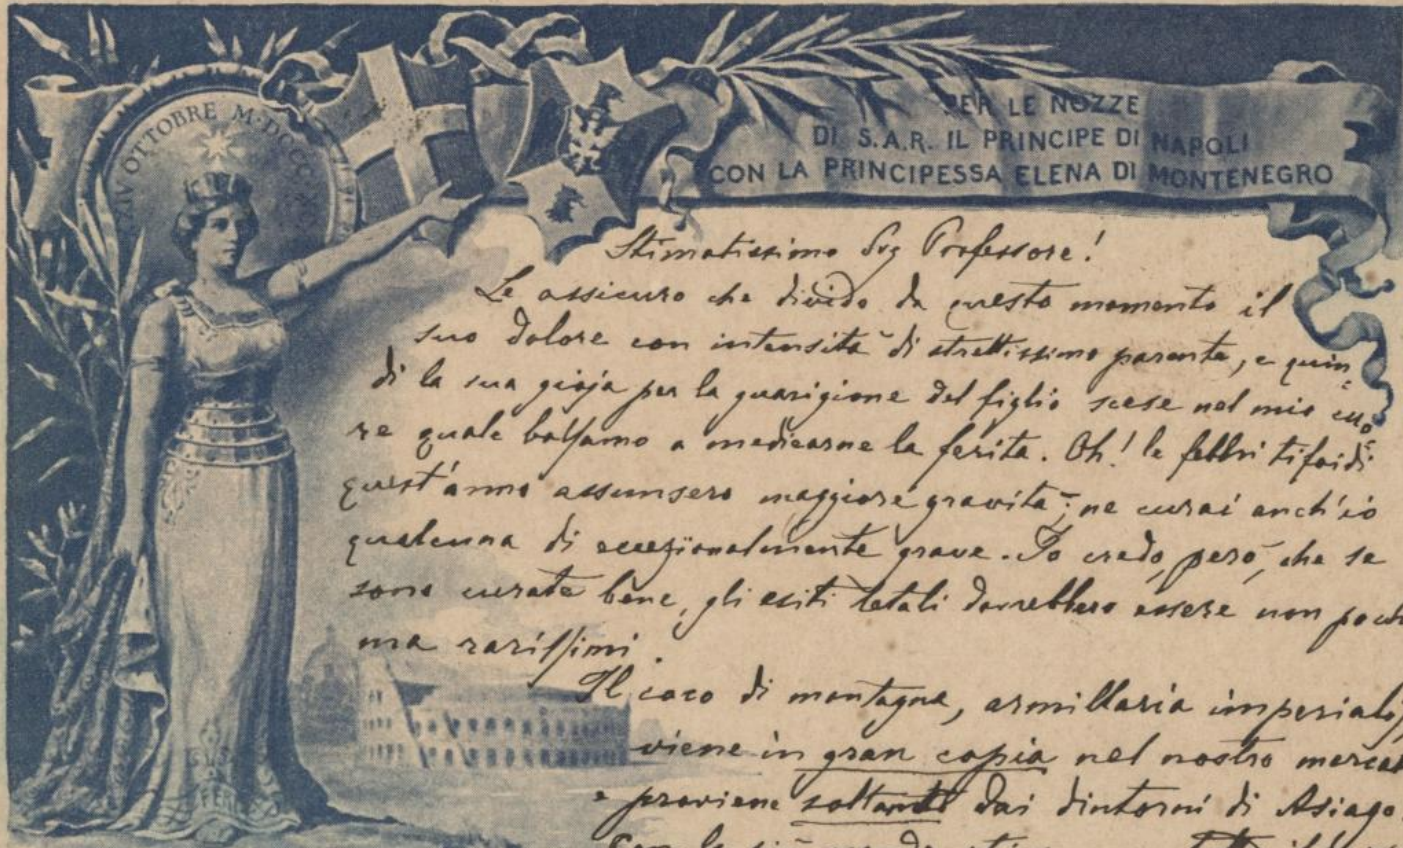 XXIV OTTOBRE M·DCCC·XC
PER LE NOZZE
DI S.A.R. IL PRINCIPE DI NAPOLI
CON LA PRINCIPESSA ELENA DI MONTENEGRO
Stimatissimo Sig Professore!
Le assicuro che divido da questo momento il
suo dolore con intensità di strettissimo parente, e quin=
di la sua gioja per la guarigione del figlio scese nel mio cuo=
re quale balsamo a medicarne la ferita. Oh! le febbri tifoidi
quest'anno assunsero maggiore gravità; ne curai anch'io
qualcuna di eccezionalmente grave. Io credo, però, che se
sono curate bene, gli esiti letali dovrebbero essere non pochi
ma rarissimi.
Il coco di montagna, armillaria imperialis,
viene in gran copia nel nostro mercat
e proviene soltanto dai dintorni di Asiago.
FERT